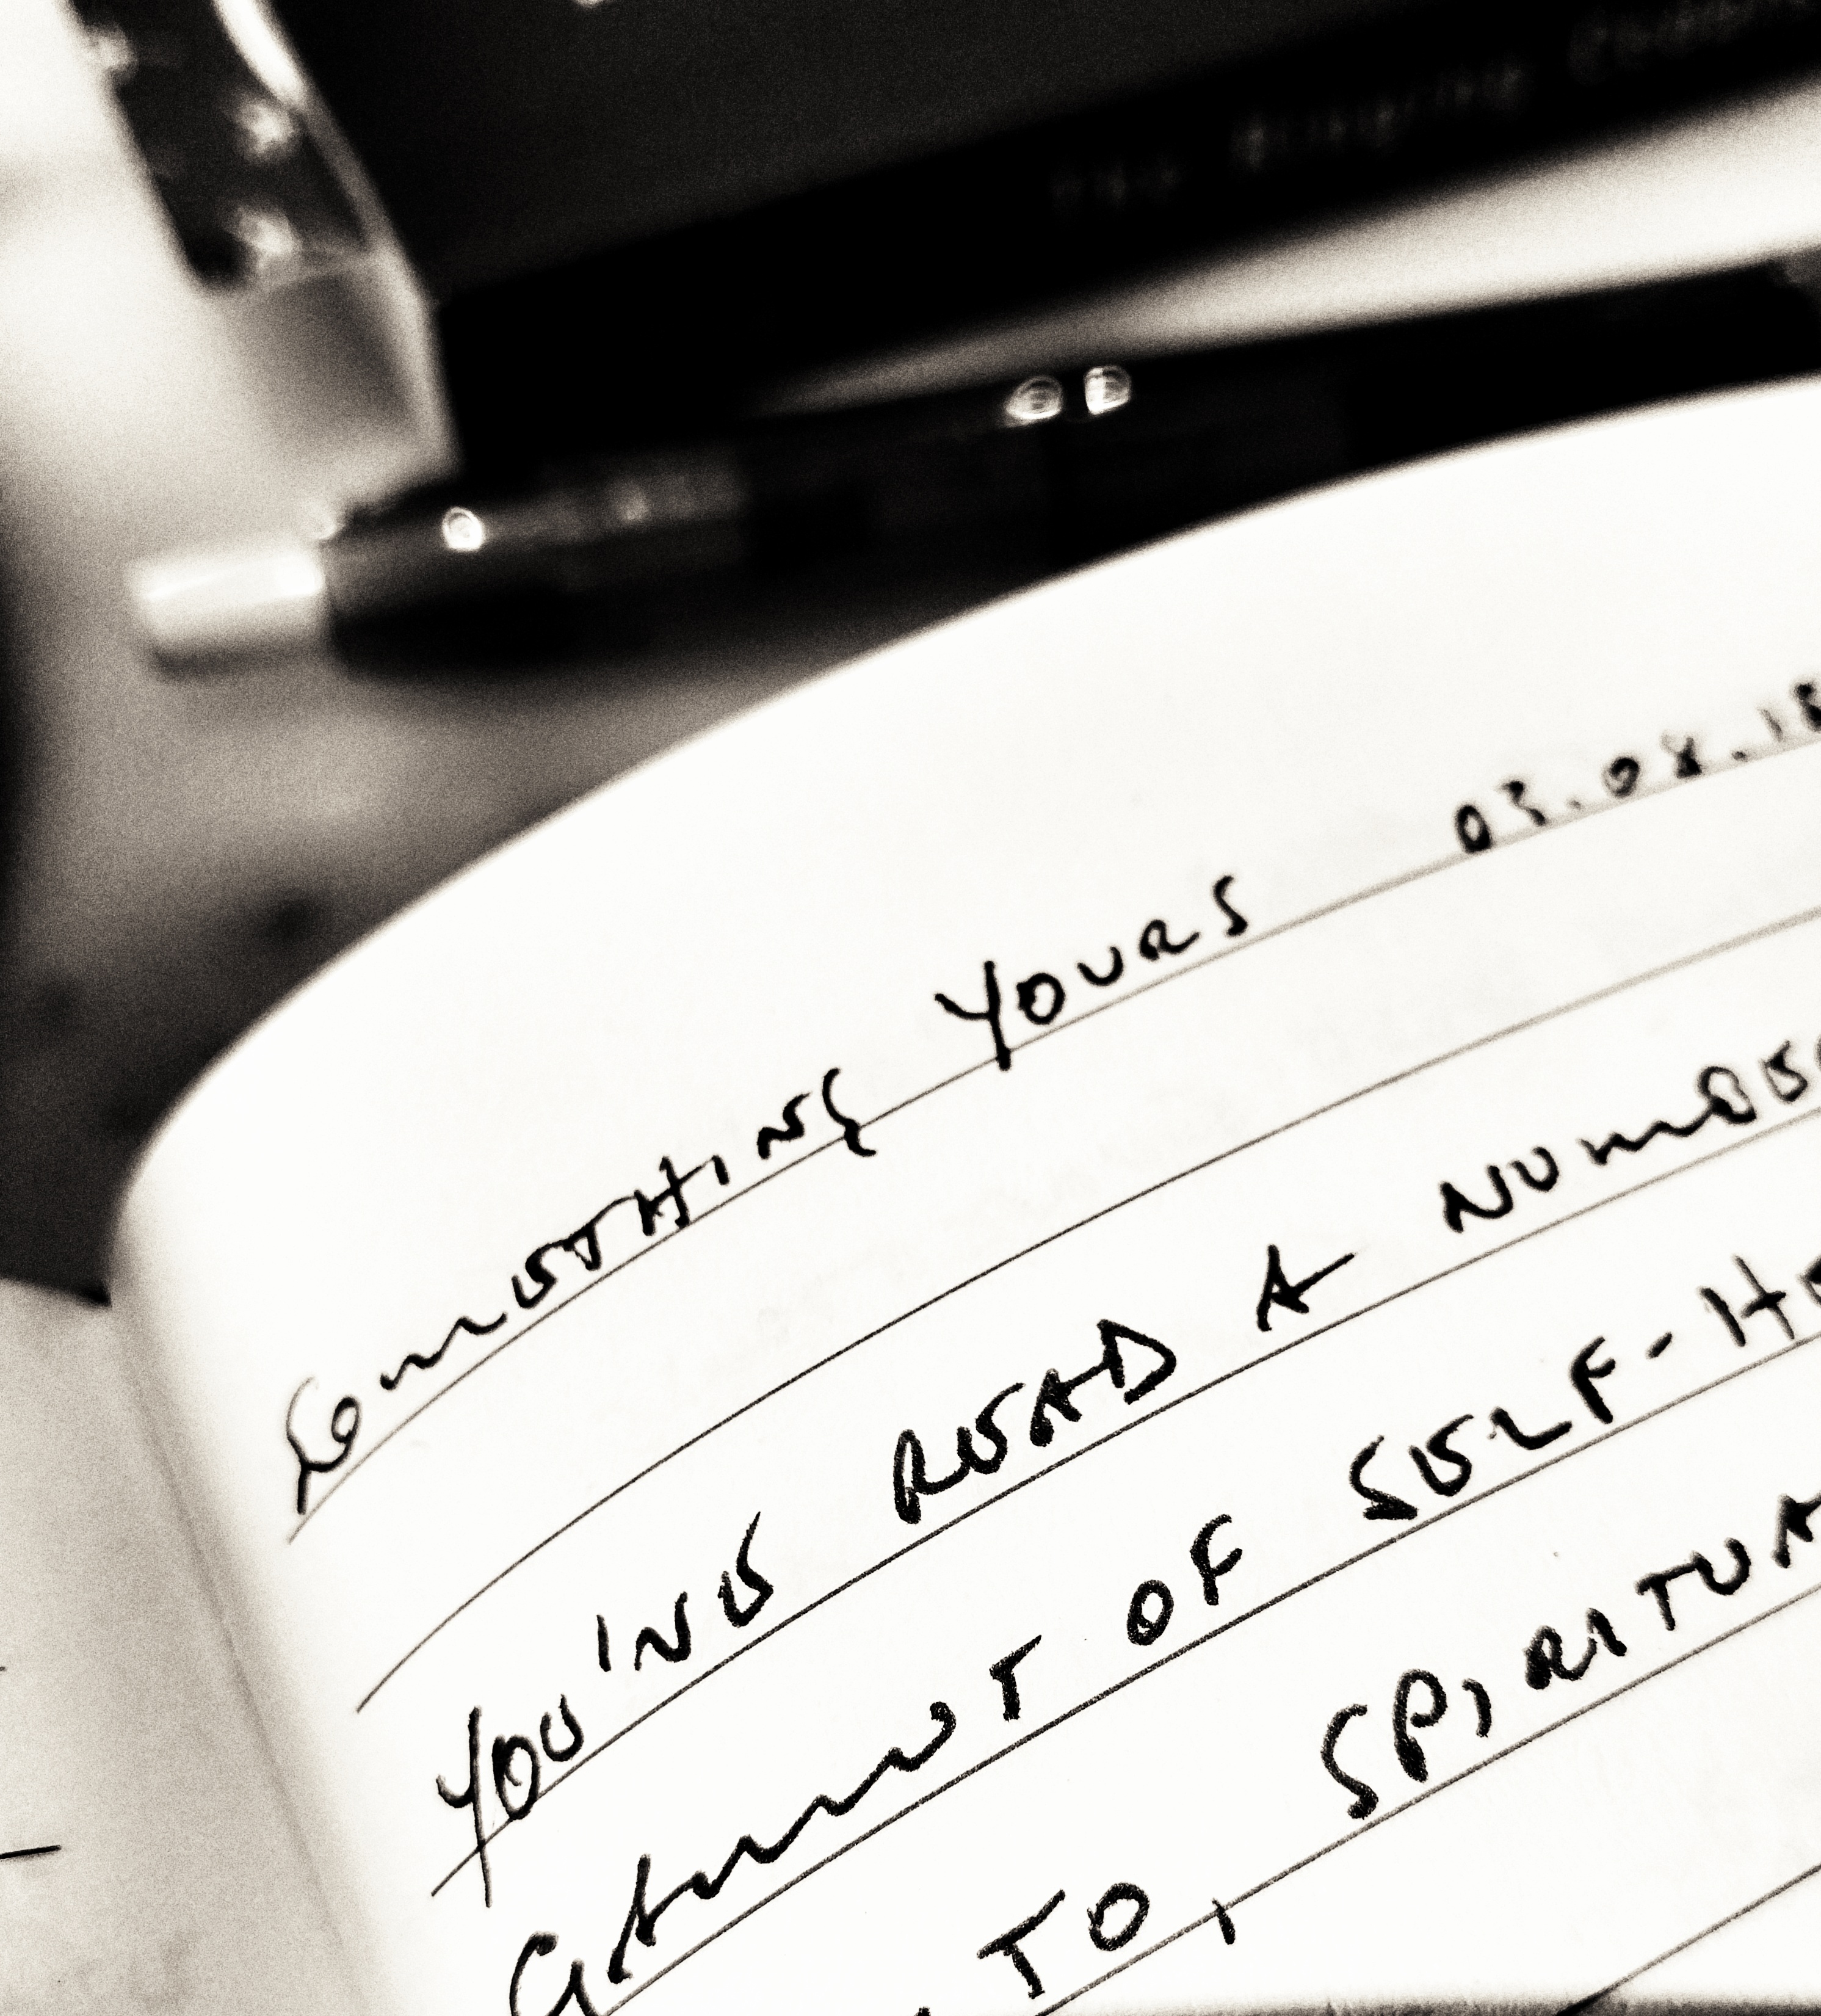 SOMETHING YOURS 03.08.1
YOU'VE READ A NUMBE
GAMUT OF SELF-HE
TO, SPIRITUA